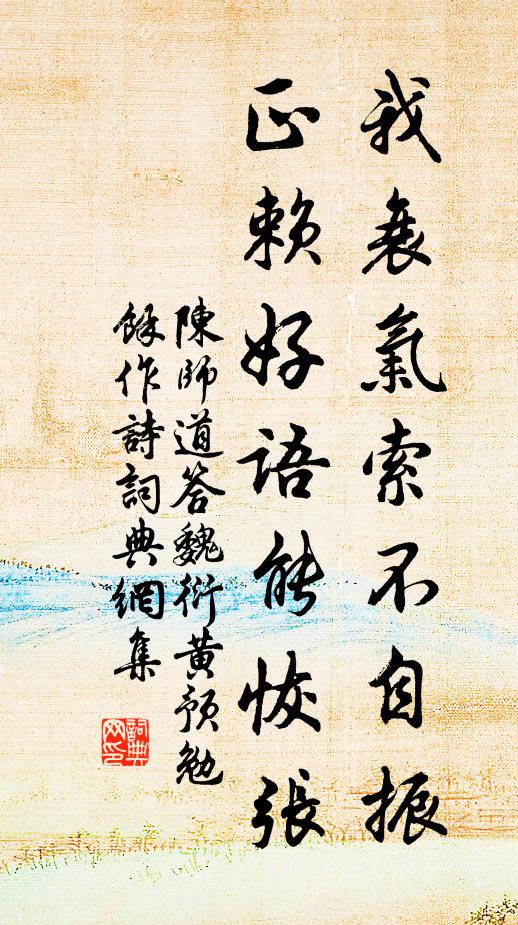 我衰氣索不自振
正賴好語能恢張
陳師道答魏衍黄預勉
餘作詩詞典網集
詞典
网印